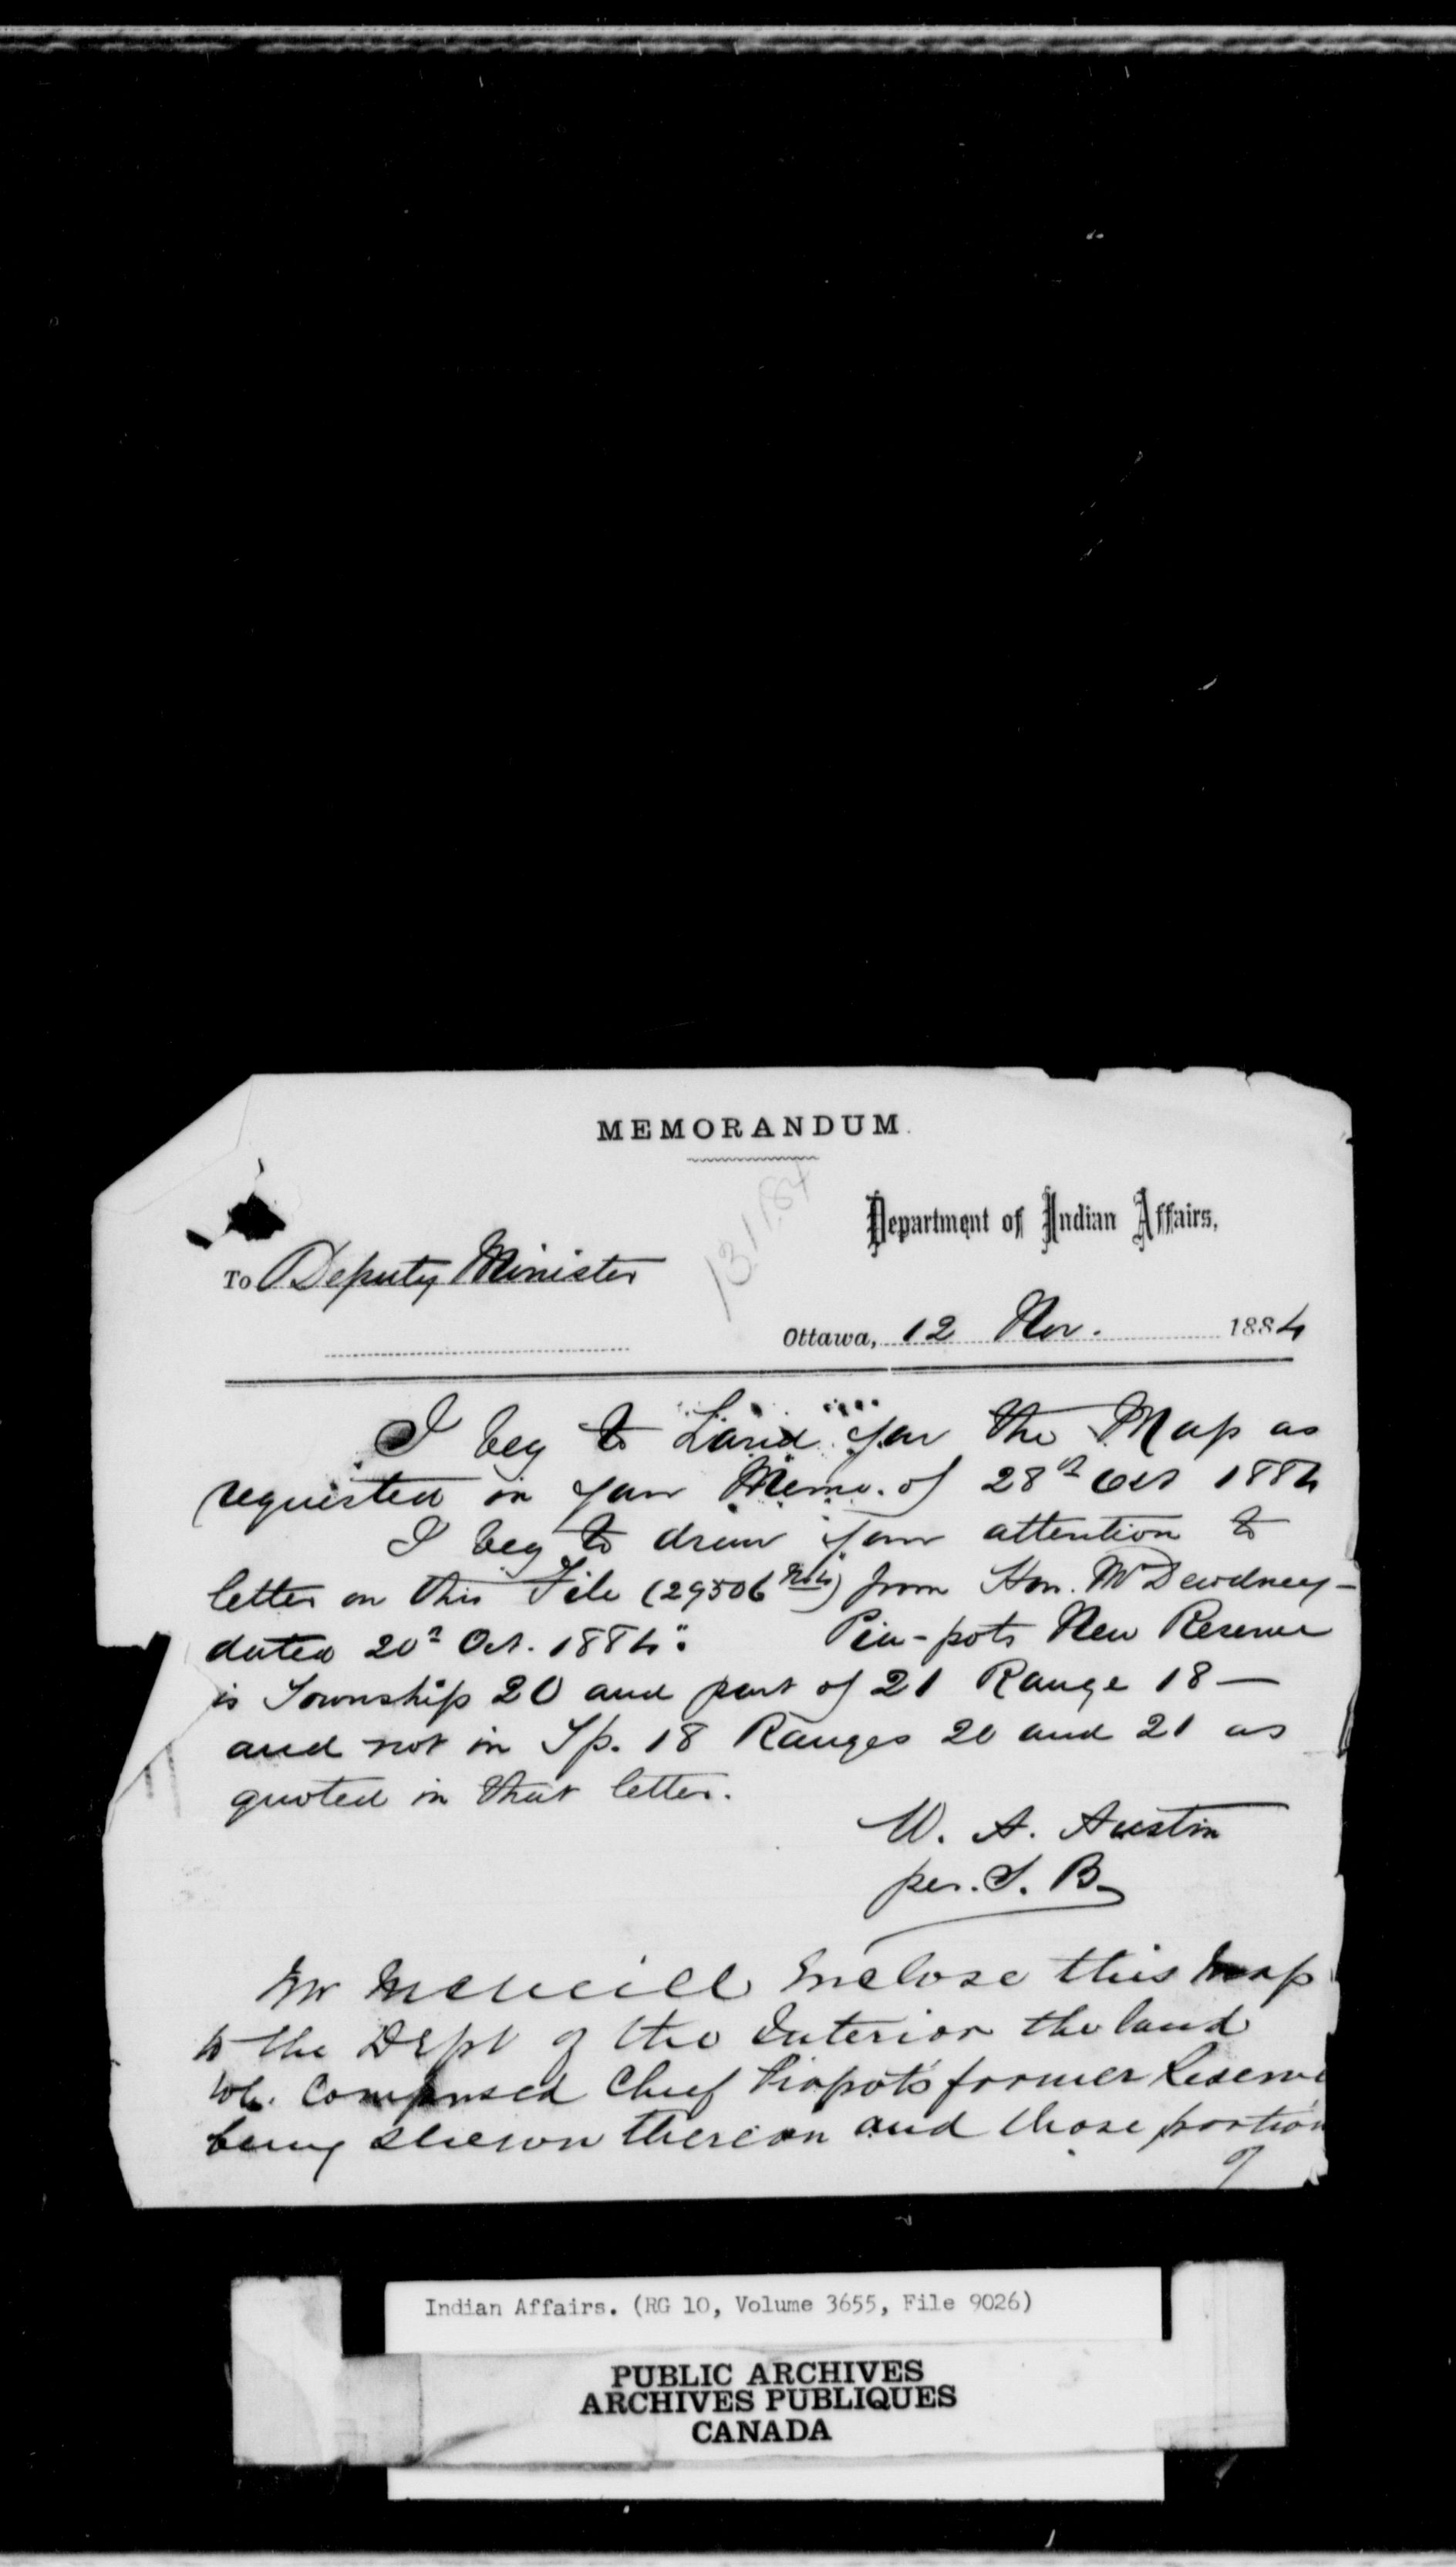 MEMORANDUM.
Department of Indian Affairs,
To Deputy Minister
Ottawa, 12 Nov. 1884
I beg to hand you the Map as
requested in your Memo. of 28th Oct 1884
I beg to draw your attention to
letter on this File (29506) from Hon. Mr Dewdney -
dated 20th Oct. 1884: Pia-pots New Reserve
is Township 20 and part of 21 Range 18 —
and not in Tp. 18 Ranges 20 and 21 as
quoted in that letter.
W. A. Austin
per. S. B.
Mr McNeill Enclose this map
to the Dept of the Interior the land
wh. Comprised Chief Piapot's former Reserve
being shewn thereon and those portion
of
Indian Affairs. (RG 10, Volume 3655, File 9026)
PUBLIC ARCHIVES
ARCHIVES PUBLIQUES
CANADA